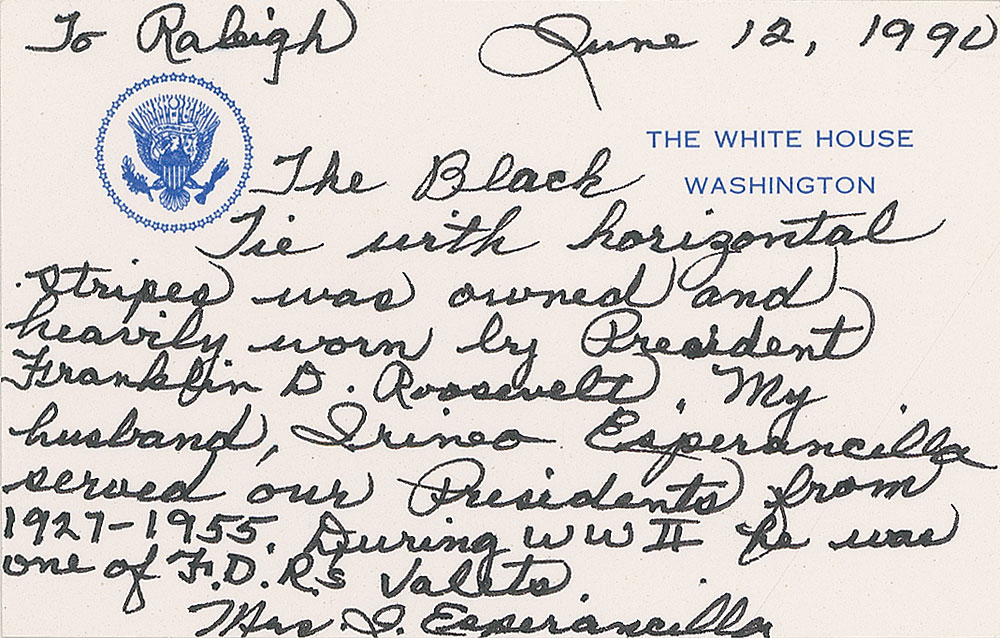 To Raleigh June 12, 1990
THE WHITE HOUSE
WASHINGTON
The Black
Tie with horizontal
stripes was owned and
heavily worn by President
Franklin D. Roosevelt. My
husband, Irineo Esperancilla
served our Presidents from
1927-1955. During WW II he was
one of F.D.R.s Valets
Mrs. I. Esperancilla